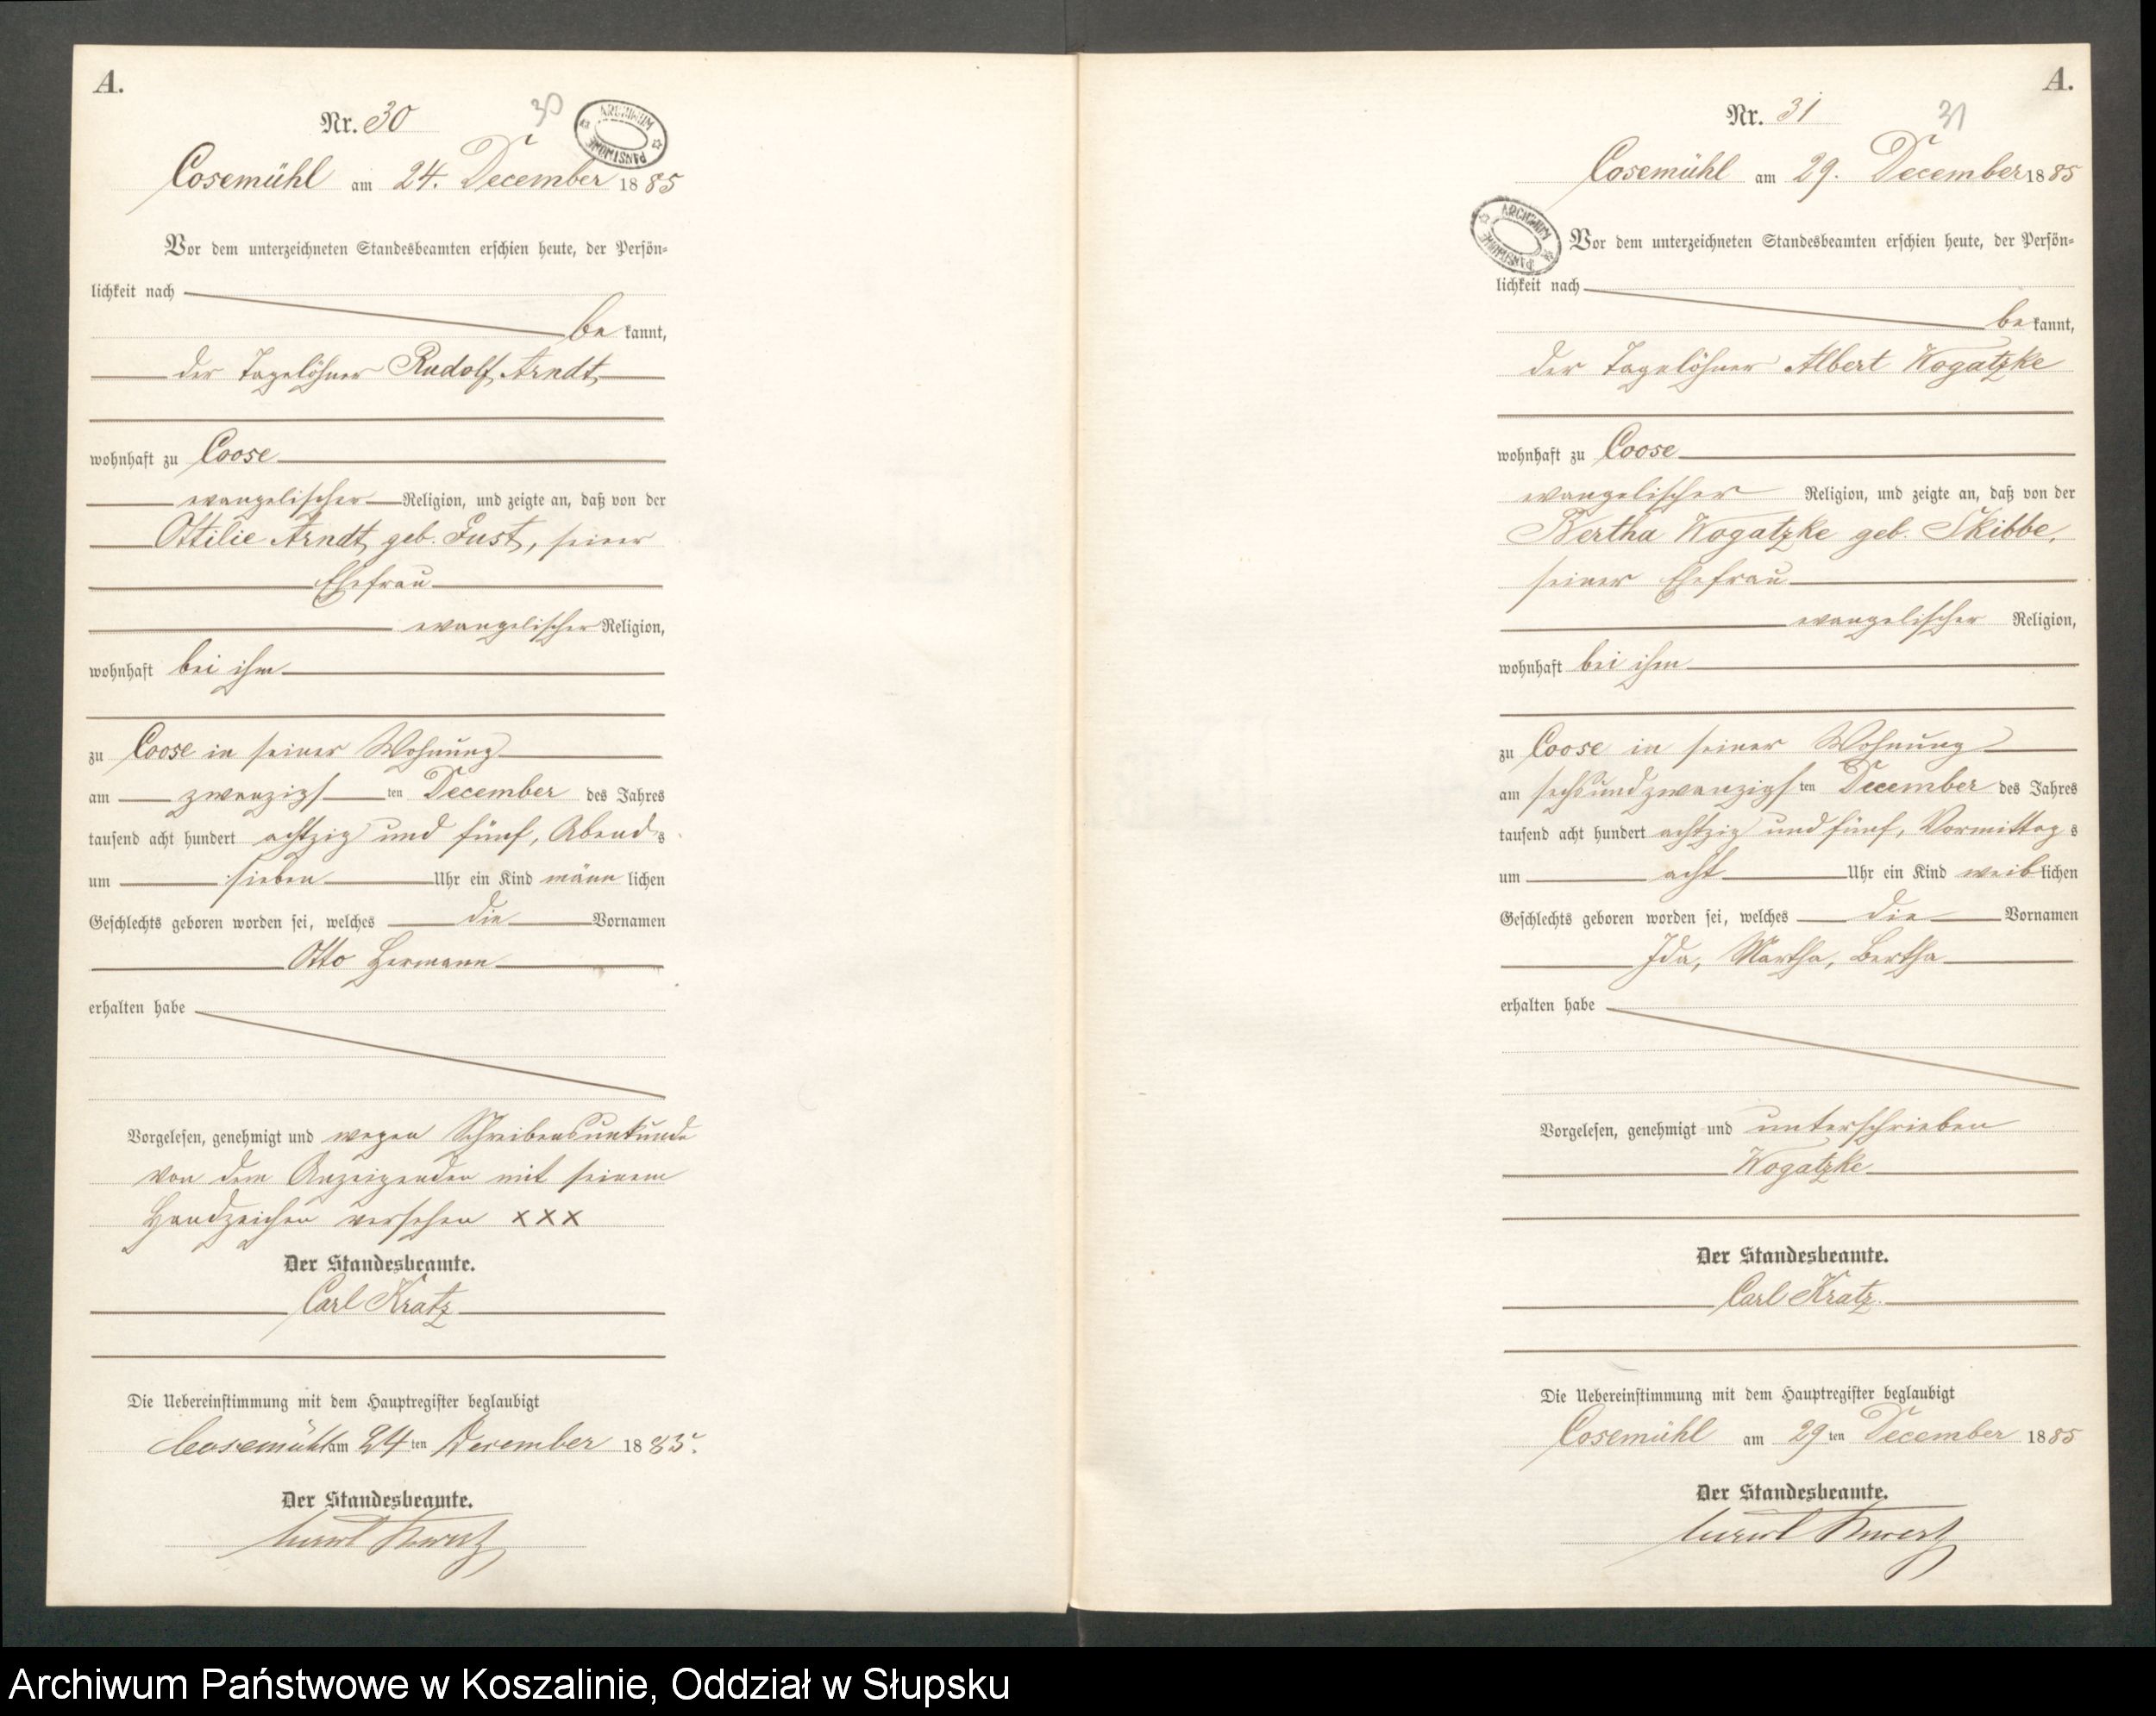 A.
Nr. 30
30
ARCHIWUM PAŃSTWOWE
Cosemühl am 24. December 1885
Vor dem unterzeichneten Standesbeamten erschien heute, der Persön-
lichkeit nach
be kannt,
der Tagelöhner Rudolf Arndt
wohnhaft zu Coose
evangelischer Religion, und zeigte an, daß von der
Ottilie Arndt geb. Fust, seiner
Ehefrau
evangelischer Religion,
wohnhaft bei ihm
zu Coose in seiner Wohnung
am zwanzigsten December des Jahres
tausend acht hundert achtzig und fünf, Abends
um sieben Uhr ein Kind männlichen
Geschlechts geboren worden sei, welches die Vornamen
Otto Hermann
erhalten habe
Vorgelesen, genehmigt und wegen Schreibensunkunde
von dem Anzeigenden mit seinem
Handzeichen versehen XXX
Der Standesbeamte.
Carl Kratz
Die Uebereinstimmung mit dem Hauptregister beglaubigt
Cosemühl am 24ten December 1885.
Der Standesbeamte.
Carl Kratz
A.
Nr. 31
31
Cosemühl am 29. December 1885
ARCHIWUM PAŃSTWOWE
Vor dem unterzeichneten Standesbeamten erschien heute, der Persön-
lichkeit nach
be kannt,
der Tagelöhner Albert Wogatzke
wohnhaft zu Coose
evangelischer Religion, und zeigte an, daß von der
Bertha Wogatzke geb. Skibbe,
seiner Ehefrau
evangelischer Religion,
wohnhaft bei ihm
zu Coose in seiner Wohnung
am sechsundzwanzigsten December des Jahres
tausend acht hundert achtzig und fünf, Vormittags
um acht Uhr ein Kind weiblichen
Geschlechts geboren worden sei, welches die Vornamen
Ida, Martha, Bertha
erhalten habe
Vorgelesen, genehmigt und unterschrieben
Wogatzke
Der Standesbeamte.
Carl Kratz.
Die Uebereinstimmung mit dem Hauptregister beglaubigt
Cosemühl am 29ten December 1885
Der Standesbeamte.
Carl Kratz
Archiwum Państwowe w Koszalinie, Oddział w Słupsku